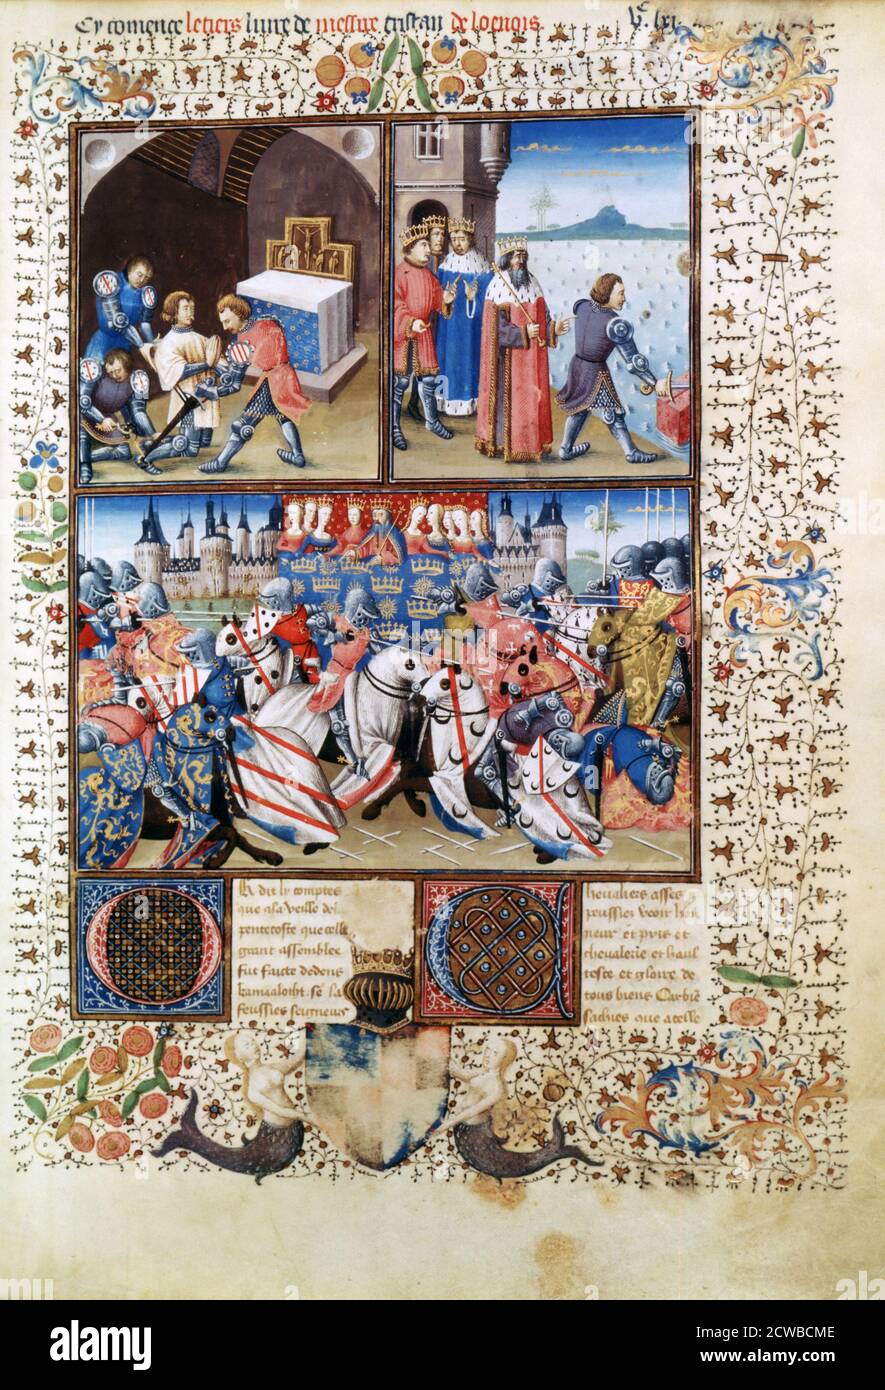 Cy comence le tiers livre de messire tristan de loenois.
Vc. lxi.
Or dit ly comptes
que a la veille de
pentecoste que celle
grant assemblee
fut faicte dedens
kamaaloth. se la
feussies seigneur
Chevaliers asses
peussiez veoir hon
neur et pris et
chevalerie et haul
tesse et gloire de
tous biens Car bie
sachies que a celle
a alamy stock photo
alamy
Image ID: 2CWBCME
www.alamy.com